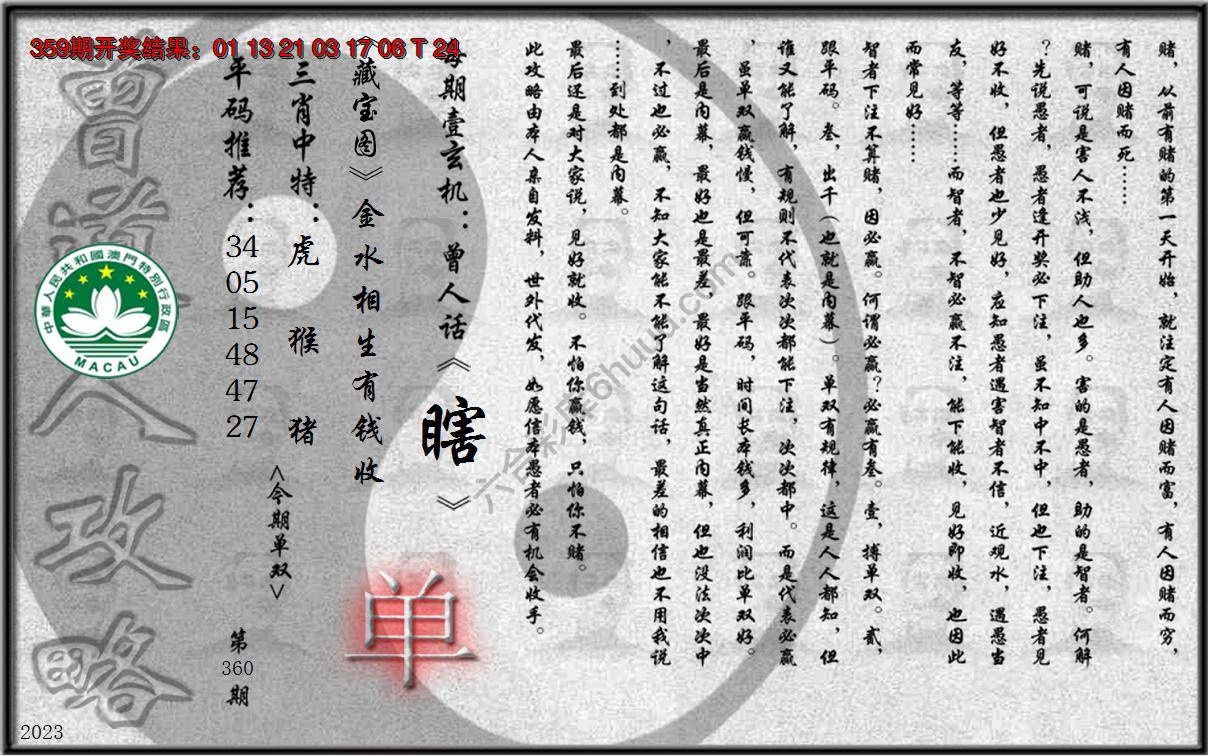 359期开奖结果：01 13 21 03 17 06 T 24
赌，从前有赌的第一天开始，就注定有人因赌而富，有人因赌而穷，
有人因赌而死……
赌，可说是害人不浅，但助人也多。害的是愚者，助的是智者。何解
？先说愚者，愚者逢开奖必下注，虽不知中不中，但也下注，愚者见
好不收，但愚者也少见好，应知愚者遇害智者不信，近观水，遇愚当
友，等等……而智者，不智必赢不注，能下能收，见好即收，也因此
而常见好……
智者下注不算赌，因必赢。何谓必赢？必赢有叁。壹，搏单双。贰，
跟平码。叁，出千（也就是内幕）。单双有规律，这是人人都知，但
谁又能了解，有规则不代表次次都能下注，次次都中。而是代表必赢
，虽单双赢钱慢，但可靠。跟平码，时间长本钱多，利润比单双好。
最后是内幕，最好也是最差，最好是当然真正内幕，但也没法次次中
，不过也必赢，不知大家能不能了解这句话，最差的相信也不用我说
……到处都是内幕。
最后还是对大家说，见好就收。不怕你赢钱，只怕你不赌。
此攻略由本人亲自发料，世外代发，如愿信本愚者必有机会收手。
每期壹玄机：曾人话《瞎》
《藏宝图》金水相生有钱收
单
三肖中特：虎 猴 猪
<今期单双>
平码推荐：34 05 15 48 47 27
第360期
曾道人攻略
中華人民共和國澳門特別行政區
MACAU
六合彩库6huuu.com
2023